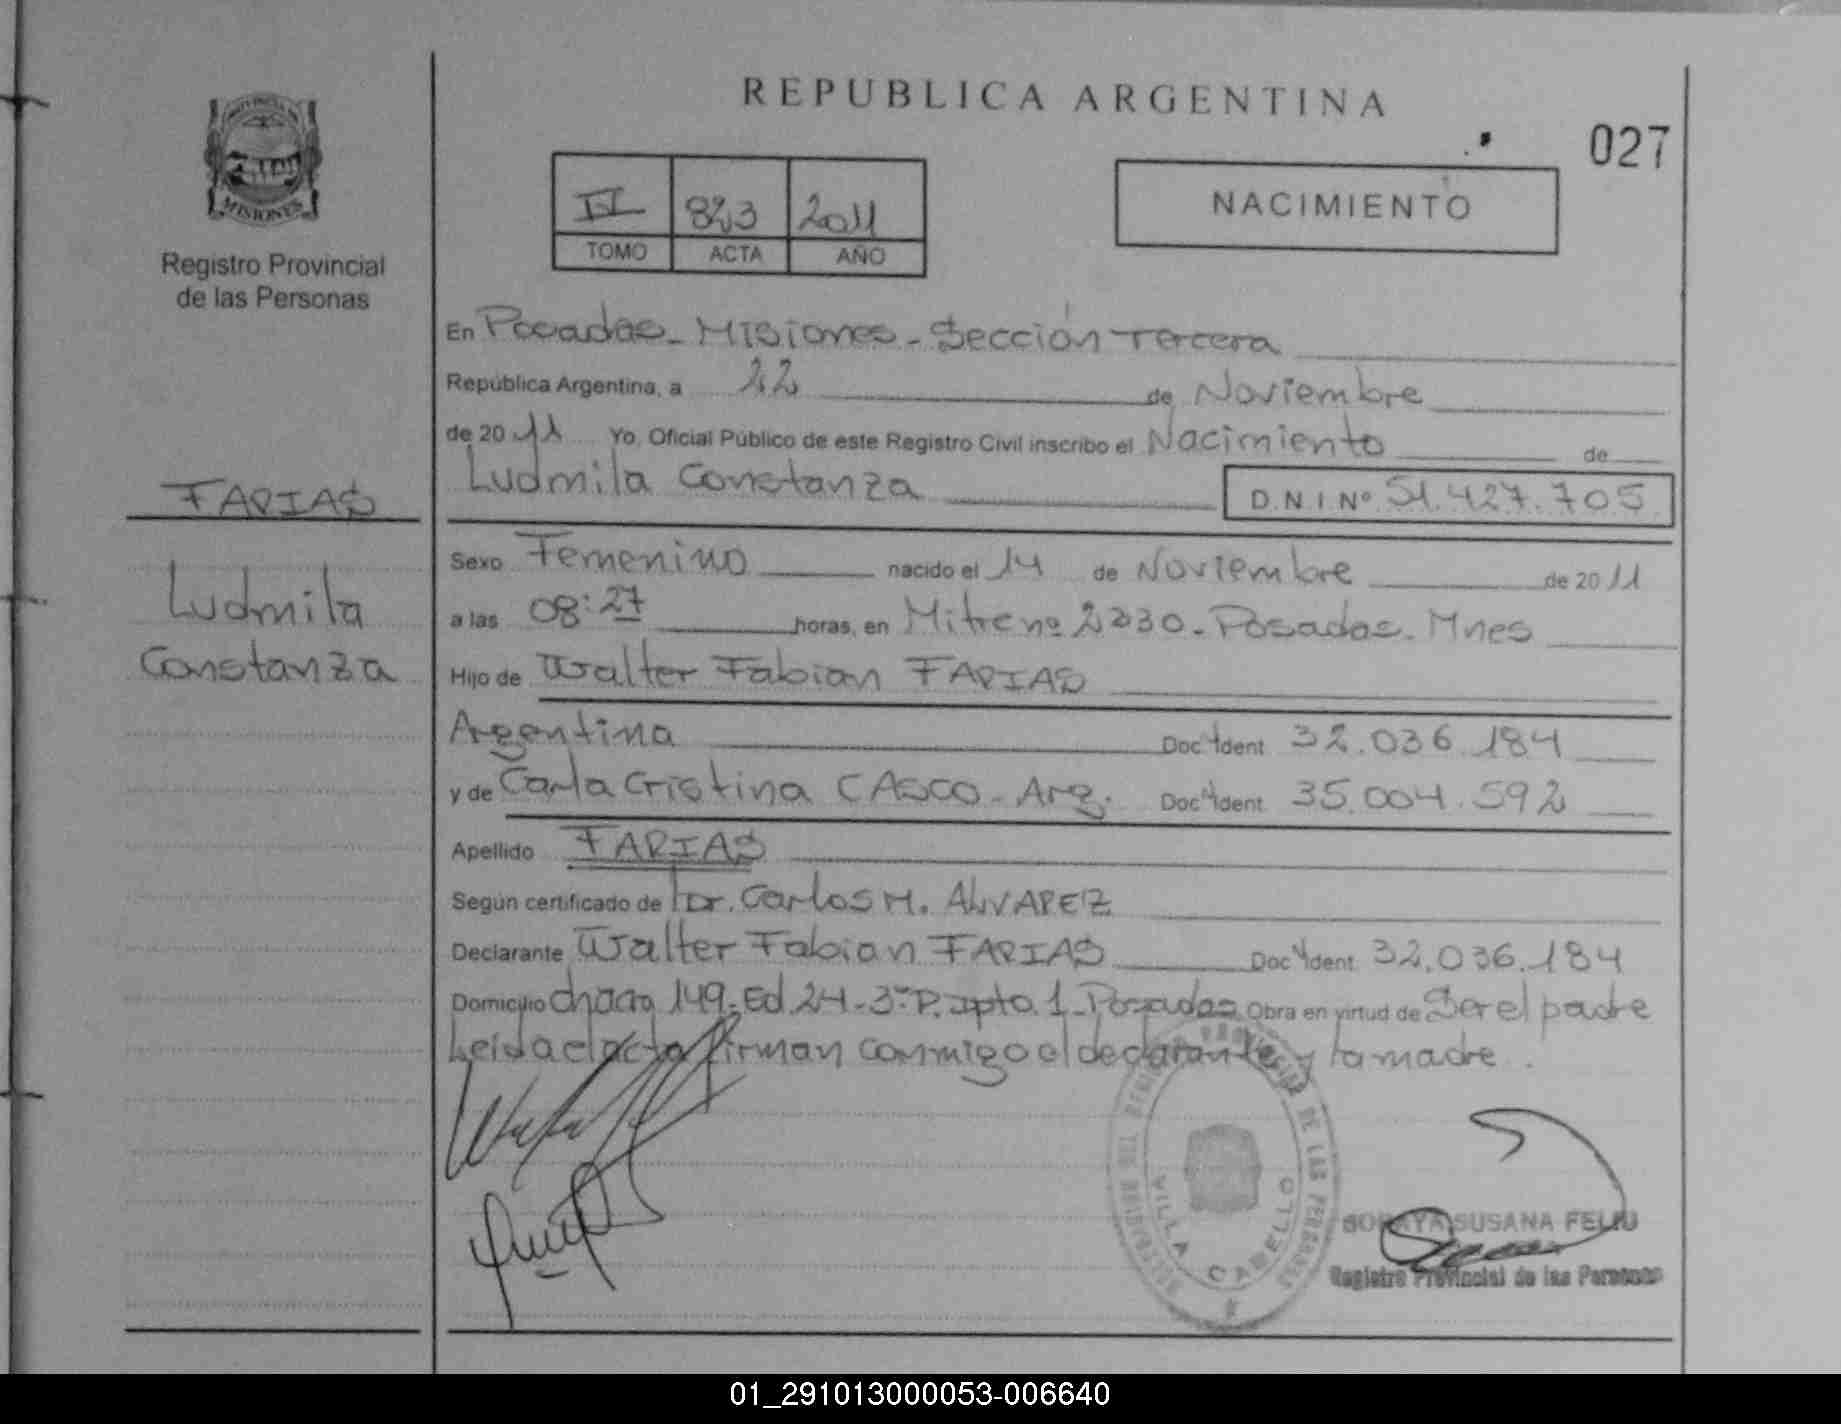 REPUBLICA ARGENTINA
027
PROVINCIA DE
MISIONES
Registro Provincial
de las Personas
823 2011
TOMO ACTA AÑO
NACIMIENTO
En Posadas - Misiones - Sección Tercera
República Argentina, a 22 de Noviembre
de 2011 Yo, Oficial Público de este Registro Civil inscribo el Nacimiento de
Ludmila Constanza D.N.I.Nº 51.427.705
FARIAS
Ludmila
Constanza
Sexo Femenino nacido el 14 de Noviembre de 2011
a las 08:27 horas, en Mitre nº 2330 - Posadas - Mnes
Hijo de Walter Fabian FARIAS
Argentina Doc Ident 32.036.184
y de Carla Cristina CASCO - Arg. Doc Ident 35.004.592
Apellido FARIAS
Según certificado de Dr. Carlos M. ALVAREZ
Declarante Walter Fabian FARIAS Doc Ident 32.036.184
Domicilio chacra 149 - Ed. 24 - 3º P. dpto. 1 - Posadas Obra en virtud de Ser el padre
Leida el acta firman conmigo el declarante y la madre.
VILLA CABELLO
SORAYA SUSANA FELIU
Registro Provincial de las Personas
01_291013000053-006640